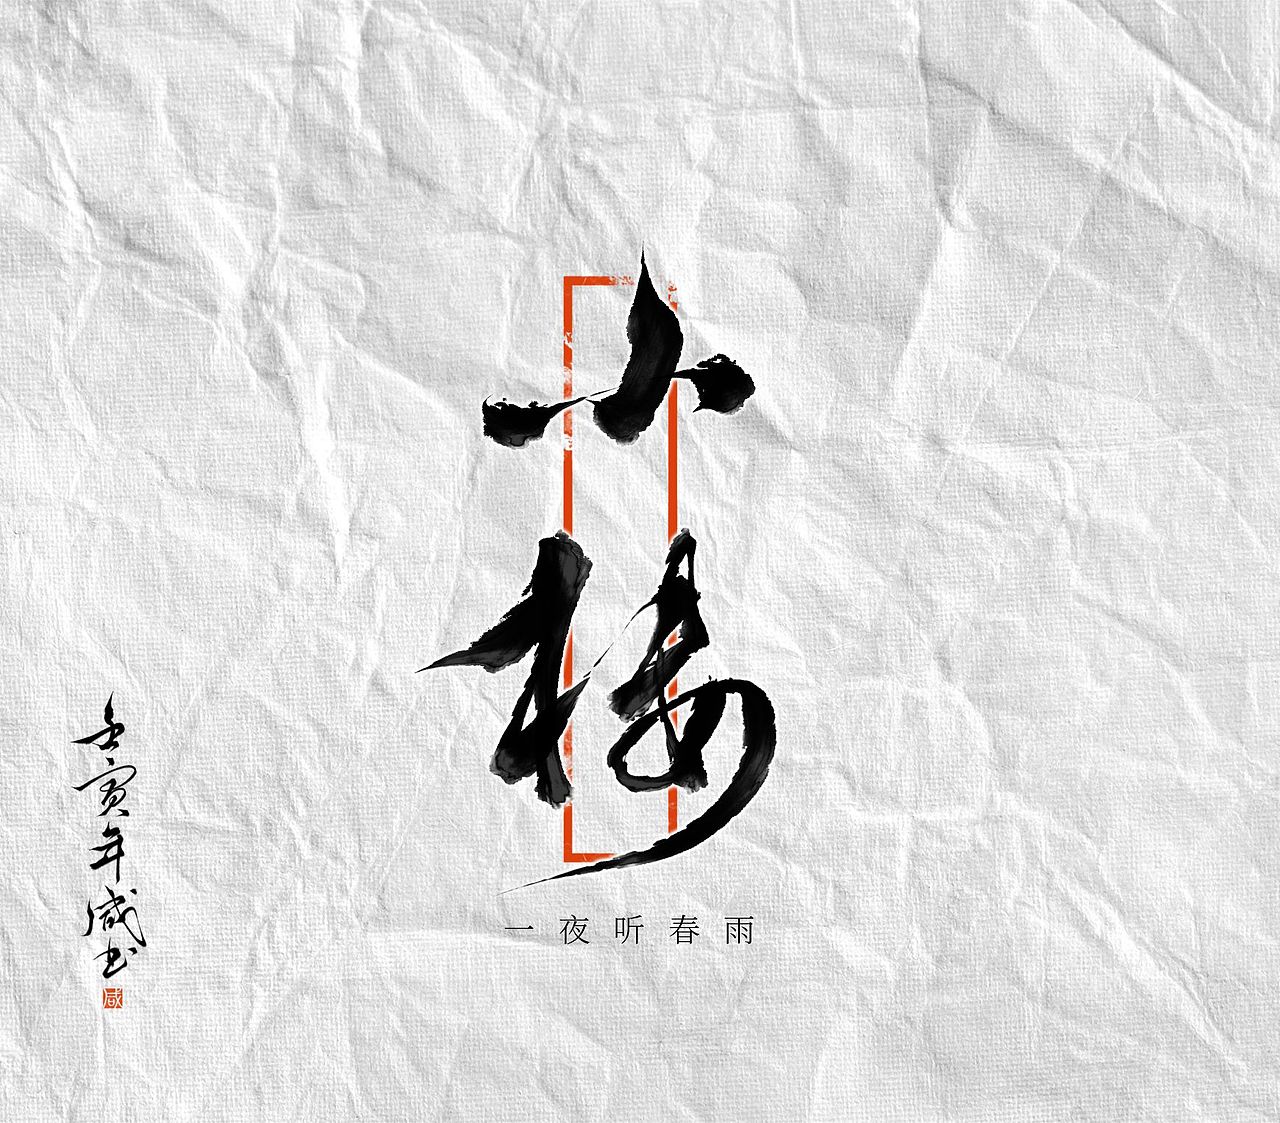 小楼
一夜听春雨
壬寅年咸书
咸